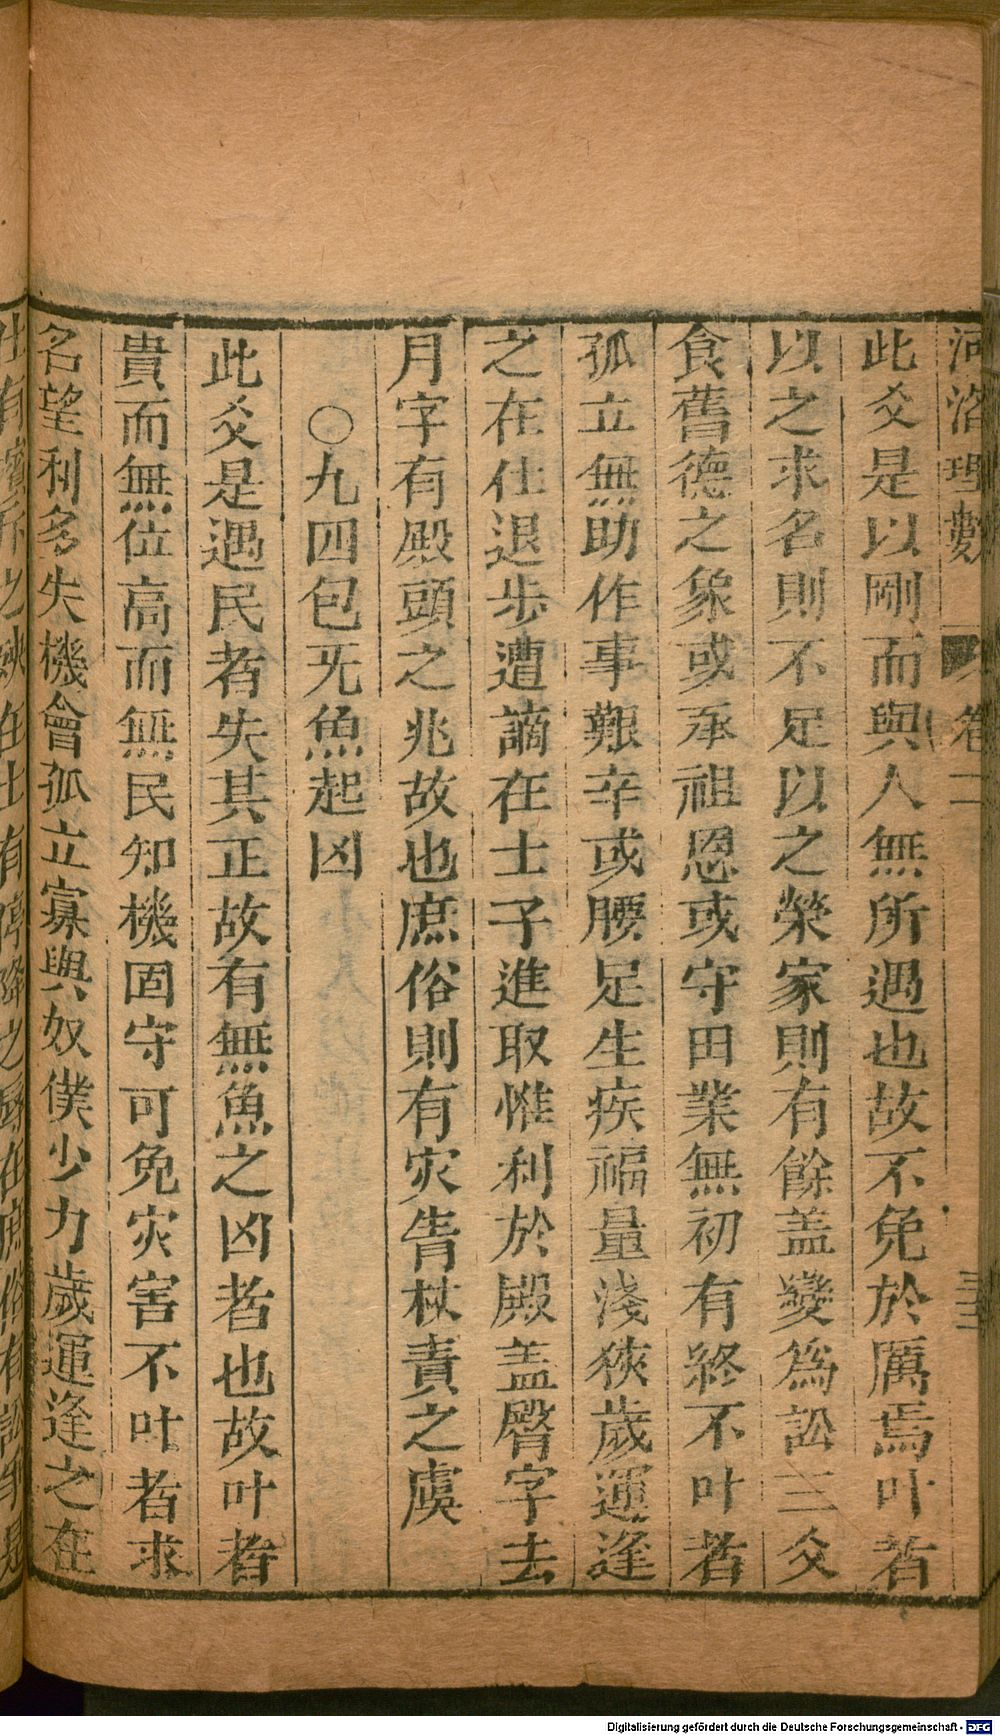 河洛理數 卷二
此爻是以剛而與人無所遇也故不免於厲焉叶者
以之求名則不足以之榮家則有餘盖變為訟三爻
食舊德之象或承祖恩或守田業無初有終不叶者
孤立無助作事艱辛或腰足生疾福量淺狹歲運逢
之在仕退步遭謫在士子進取惟利於殿盖臀字去
月字有殿頭之兆故也庶俗則有灾眚杖責之虞
○九四包无魚起凶
此爻是遇民者失其正故有無魚之凶者也故叶者
貴而無位高而無民知機固守可免灾害不叶者求
名望利多失機會孤立寡與奴僕少力歲運逢之在
Digitalisierung gefördert durch die Deutsche Forschungsgemeinschaft - DFG